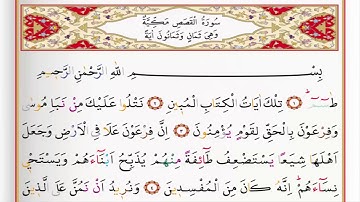 سُورَةُ الْقَصَصِ مَكِّيَّةٌ
وَهِيَ ثَمَانٍ وَثَمَانُونَ اٰيَةً
بِسْمِ اللّٰهِ الرَّحْمٰنِ الرَّحِيمِ
طٰسٓمٓ ﴿١﴾ تِلْكَ اٰيَاتُ الْكِتَابِ الْمُبِينِ ﴿٢﴾ نَتْلُوا عَلَيْكَ مِنْ نَبَأِ مُوسٰى
وَفِرْعَوْنَ بِالْحَقِّ لِقَوْمٍ يُؤْمِنُونَ ﴿٣﴾ اِنَّ فِرْعَوْنَ عَلَا فِي الْاَرْضِ وَجَعَلَ
اَهْلَهَا شِيَعًا يَسْتَضْعِفُ طَٓائِفَةً مِنْهُمْ يُذَبِّحُ اَبْنَٓاءَهُمْ وَيَسْتَحْيٖ
نِسَٓاءَهُمْ اِنَّهُ كَانَ مِنَ الْمُفْسِدِينَ ﴿٤﴾ وَنُرِيدُ اَنْ نَمُنَّ عَلَى الَّذِينَ